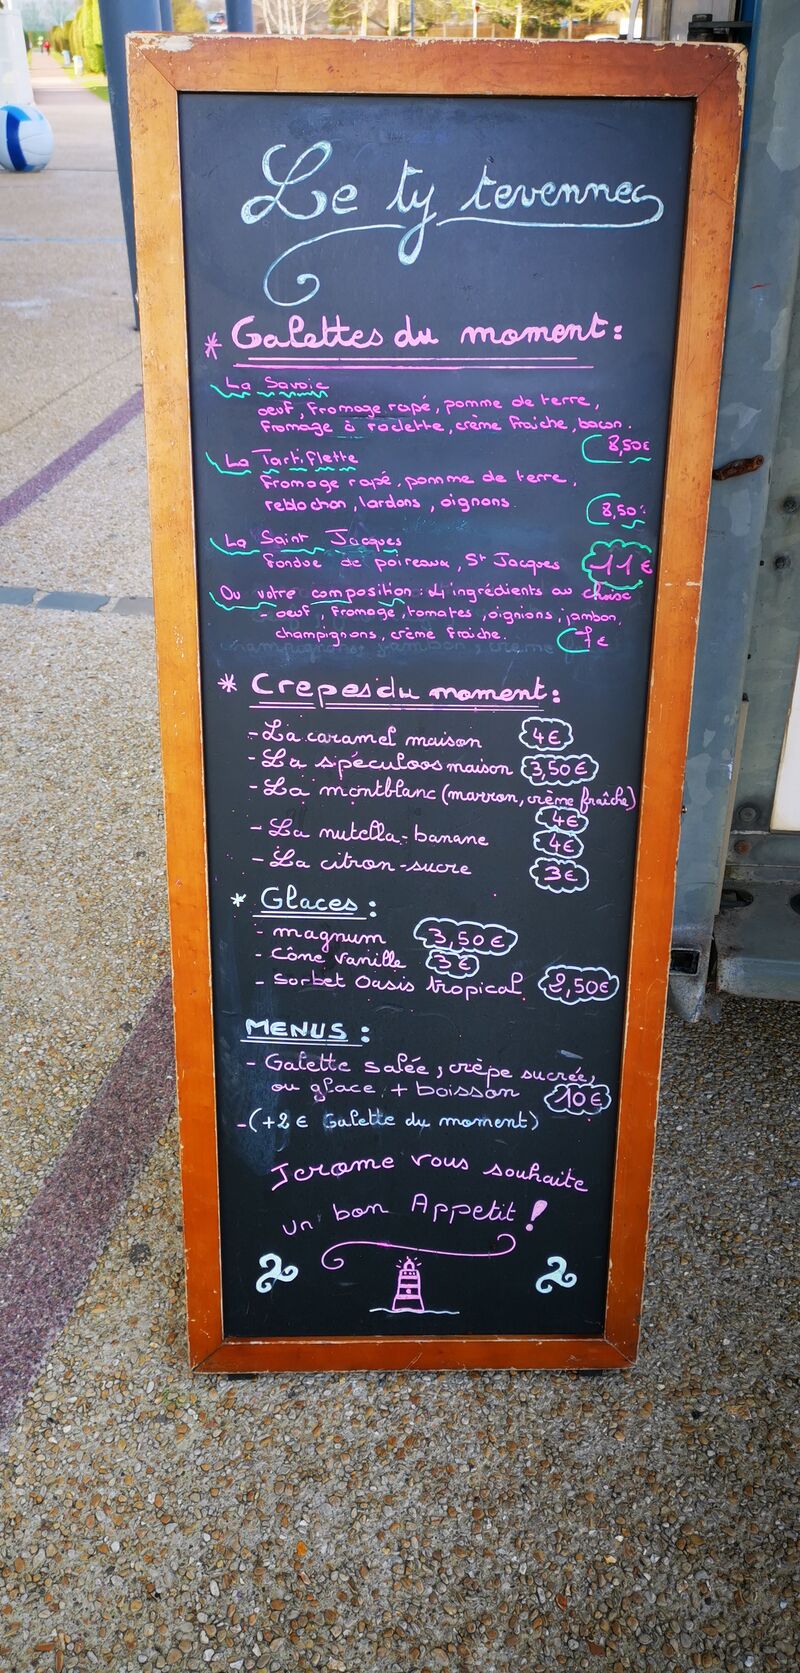 Le ty tevennec
* Galettes du moment :
La Savoie
oeuf, fromage rapé, pomme de terre,
fromage à raclette, crème fraiche, bacon.
8,50€
La Tartiflette
fromage rapé, pomme de terre,
reblochon, lardons, oignons.
8,50
La Saint Jacques
fondue de poireaux, St Jacques 11€
Ou votre composition : 4 ingrédients au choix
- oeuf, fromage, tomates, oignions, jambon,
champignons, crème fraiche. 7€
* Crepes du moment :
- La caramel maison 4€
- La spéculoos maison 3,50€
- La montblanc (marron, crème fraîche)
4€
- La nutella-banane 4€
- La citron-sucre 3€
* Glaces :
- magnum 3,50€
- Cône vanille 3€
- Sorbet Oasis tropical 2,50€
MENUS :
- Galette salée, crèpe sucrée,
ou glace + boisson 10€
- (+2€ Galette du moment)
Jerome vous souhaite
un bon Appetit !